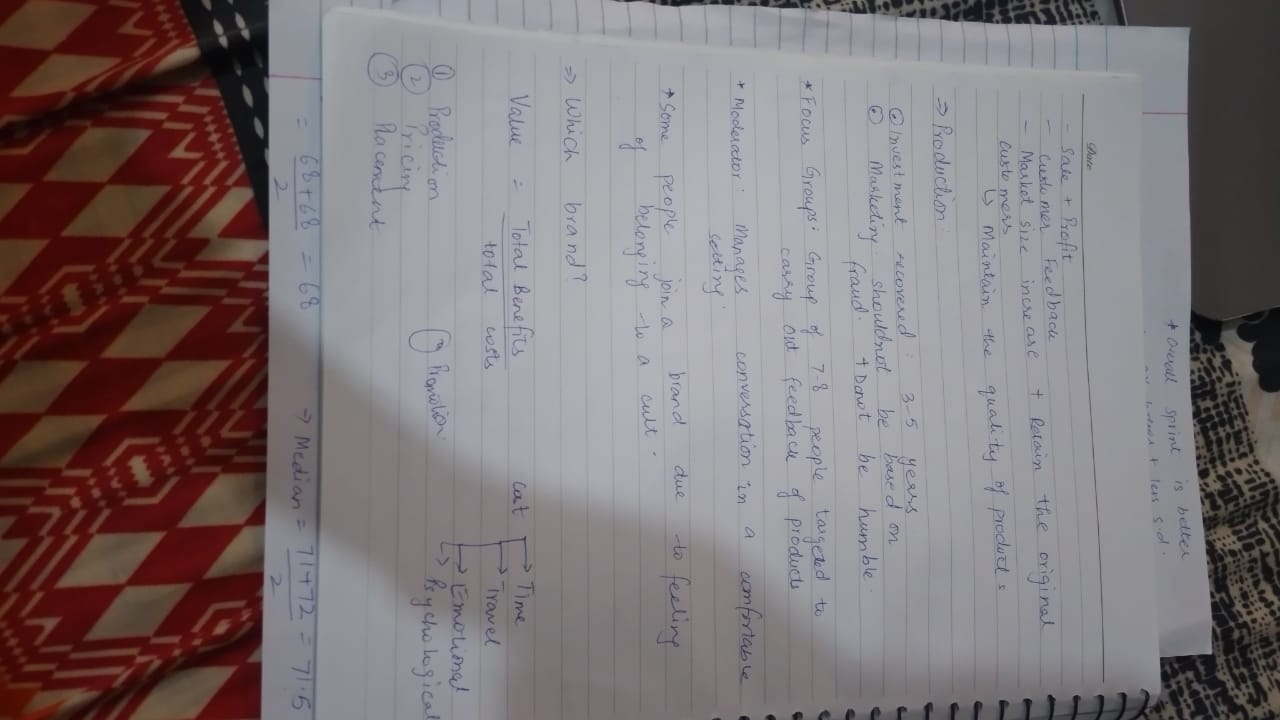 * Overall sprint is better
+ less s.d.
Date
- Sale + Profit
- Customer Feedback
- Market size increase + Retain the original
customers
↳ Maintain the quality of products
⇒ Production:
Investment recovered: 3-5 years
Marketing shouldnot be based on
fraud. + Donot be humble.
* Focus Groups: Group of 7-8 people targeted to
carry out feedback of products
+ Moderator: Manages conversation in a comfortable
setting.
* Some people join a brand due to feeling
of belonging to a cult.
⇒ Which brand?
Value = Total Benefits
total costs
Cost → Time
→ Travel
→ Emotional
→ Psychological
① Production
② Pricing
③ Placement
Promotion
= 68+68 = 68
2
→ Median = 71+72 = 71.5
2